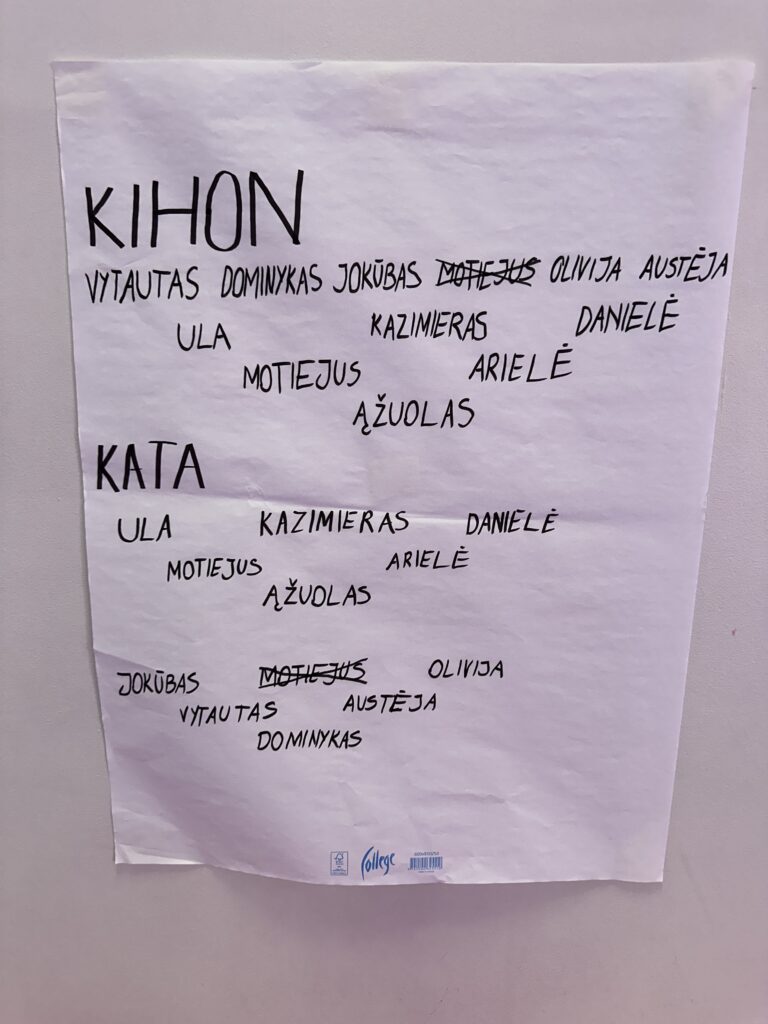 KIHON
VYTAUTAS DOMINYKAS JOKŪBAS MOTIEJUS OLIVIJA AUSTĖJA
ULA KAZIMIERAS DANIELĖ
MOTIEJUS ARIELĖ
ĄŽUOLAS
KATA
ULA KAZIMIERAS DANIELĖ
MOTIEJUS ARIELĖ
ĄŽUOLAS
JOKŪBAS MOTIEJUS OLIVIJA
VYTAUTAS AUSTĖJA
DOMINYKAS
College